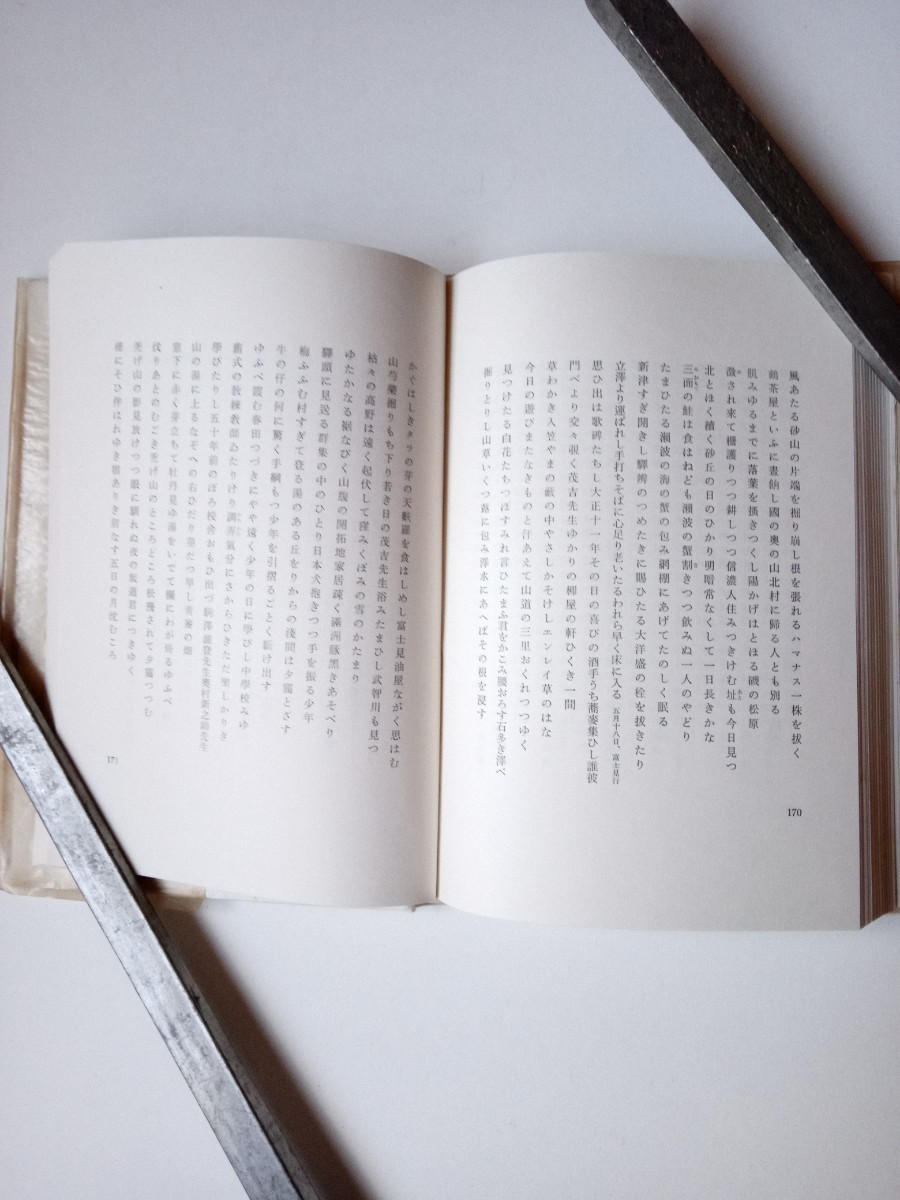 風あたる砂山の片端を掘り崩し根を張れるハマナス一株を拔く
鵜茶屋といふに晝餉し國の奧の山北村に歸る人とも別る
肌みゆるまでに落葉を搔きつくし陽かげはとほる磯の松原
徴され來て柵護りつつ耕しつつ信濃人住みつきけむ址も今日見つ
北とほく續く砂丘の日のひかり明暗常なくして一日長きかな
三面の鮭は食はねども瀨波の蟹割きつつ飮みぬ一人のやどり
たまひたる瀨波の海の蟹の包み網棚にあげてたのしく眠る
新津すぎ開きし驛辨のつめたきに賜ひたる大洋盛の栓を拔きたり
立澤より運ばれし手打ちそばに心足り老いたるわれら早く床に入る 五月十八日、富士見行
思ひ出は歌碑たちし大正十一年その日の喜びの酒手うち蕎麥集ひし誰彼
門べより交々覗く茂吉先生ゆかりの柳屋の軒ひくき一間
草わかき入笠やまの畝の中やさしかそけしエンレイ草のはな
今日の遊びまたなきものと汗あえて山道の三里おくれつつゆく
見つけたる白花たちつぼすみれ言ひたまふ君をかこみ腰おろす石多き澤べ
掘りとりし山草いくつ蕗に包み澤水にあへばその根を浸す
170
かぐはしきタラの芽の天麩羅を食はしめし富士見油屋ながく思はむ
山芍藥掘りもち下り若き日の茂吉先生浴みたまひし武智川も見つ
枯々の高野は遠く起伏して窪みくぼみの雪のかたまり
ゆたかなる裾なびく山腹の開拓地家居疎く滿洲豚黑きあそべり
驛頭に見送る群集の中のひとり日本犬抱きつつ手を振る少年
梅ふふむ村すぎて登る湯のある丘をりからの淺間は夕靄とざす
牛の仔の何に驚く手綱もつ少年を引摺るごとく驅け出す
ゆふべ霞む春田つづきにやや遠く少年の日に學びし中學校みゆ
舊式の敎練敎師ゐたりけり調弄氣分にさからひきただ樂しかりき
學びたりし五十年前のぼろ校舍おもひ出づ駒澤雄登先生奧村新之助先生
山の湯に上るなぞへの右ひだり葉だつ早し靑麥の畑
窓下に赤く芽立ちて牡丹見ゆ湯をいでて欄にわが倚るゆふべ
伐りあとのむごき禿げ山のところどころ松殘されて夕靄つつむ
禿げ山の影見放けつつ眼に馴れぬ夜の坂道君につきゆく
171